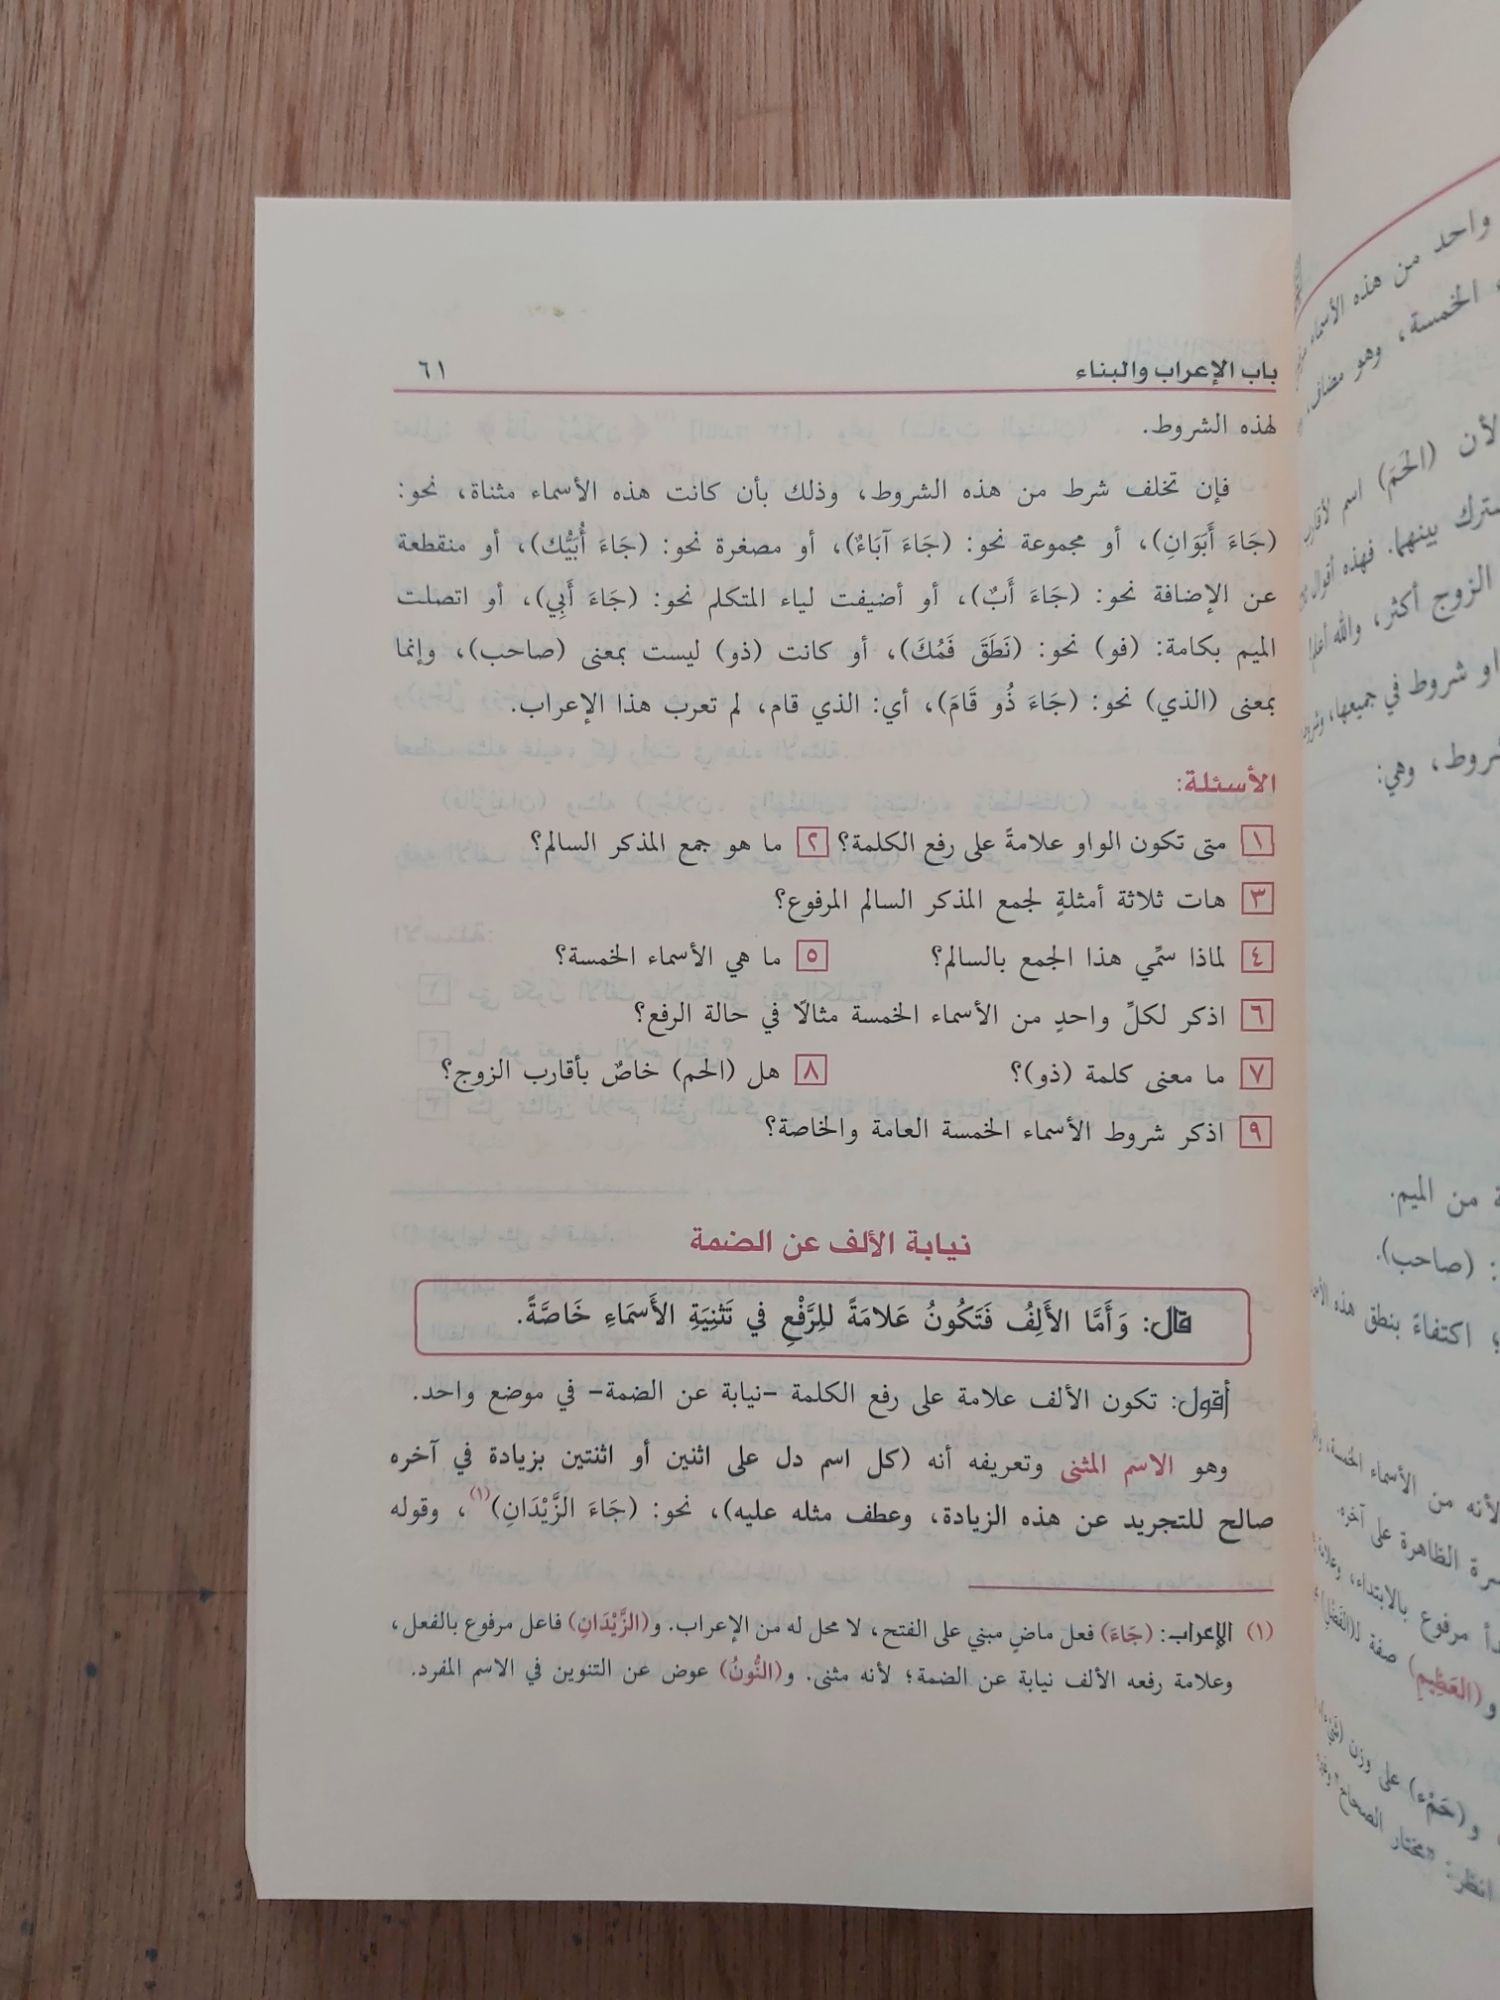 باب الإعراب والبناء ٦١
لهذه الشروط.
فإن تخلف شرط من هذه الشروط، وذلك بأن كانت هذه الأسماء مثناة، نحو:
(جَاءَ أَبَوَانِ)، أو مجموعة نحو: (جَاءَ آبَاءٌ)، أو مصغرة نحو: (جَاءَ أُبَيُّك)، أو منقطعة
عن الإضافة نحو: (جَاءَ أَبٌ)، أو أضيفت لياء المتكلم نحو: (جَاءَ أَبِي)، أو اتصلت
الميم بكامة: (فو) نحو: (نَطَقَ فَمُكَ)، أو كانت (ذو) ليست بمعنى (صاحب)، وإنما
بمعنى (الذي) نحو: (جَاءَ ذُو قَامَ)، أي: الذي قام، لم تعرب هذا الإعراب.
الأسئلة:
١ متى تكون الواو علامةً على رفع الكلمة؟ ٢ ما هو جمع المذكر السالم؟
٣ هات ثلاثة أمثلةٍ لجمع المذكر السالم المرفوع؟
٤ لماذا سمِّي هذا الجمع بالسالم؟ ٥ ما هي الأسماء الخمسة؟
٦ اذكر لكلِّ واحدٍ من الأسماء الخمسة مثالًا في حالة الرفع؟
٧ ما معنى كلمة (ذو)؟ ٨ هل (الحم) خاصٌ بأقارب الزوج؟
٩ اذكر شروط الأسماء الخمسة العامة والخاصة؟
نيابة الألف عن الضمة
قال: وَأَمَّا الأَلِفُ فَتَكُونُ عَلامَةً لِلرَّفْعِ في تَثْنِيَةِ الأَسمَاءِ خَاصَّةً.
أقول: تكون الألف علامة على رفع الكلمة -نيابة عن الضمة- في موضع واحد.
وهو الاسم المثنى وتعريفه أنه (كل اسم دل على اثنين أو اثنتين بزيادة في آخره
صالح للتجريد عن هذه الزيادة، وعطف مثله عليه)، نحو: (جَاءَ الزَّيْدَانِ)(١)، وقوله
(١) الإعراب: (جَاءَ) فعل ماضٍ مبني على الفتح، لا محل له من الإعراب. و(الزَّيْدَانِ) فاعل مرفوع بالفعل،
وعلامة رفعه الألف نيابة عن الضمة؛ لأنه مثنى. و(النُّونُ) عوض عن التنوين في الاسم المفرد.
واحد من هذه الأسماء
الخمسة، وهو مضاف،
لأن (الحَمَ) اسم لأقارب
بينهما. فهذه أقوال
الزوج أكثر، والله أعلم
شروط في جميعها،
شروط، وهي:
من الميم.
: (صاحب).
؛ اكتفاءً بنطق هذه
لأنه من الأسماء الخمسة،
الظاهرة على آخره.
مرفوع بالابتداء،
و(العَظِيمِ) صفة
و(حَمْء) على وزن
انظر: "مختار الصحاح"